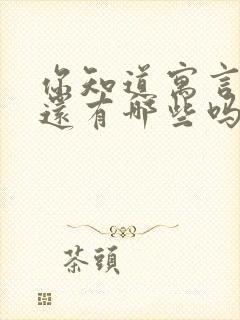 你知道寓言
還有哪些吗
茶頭